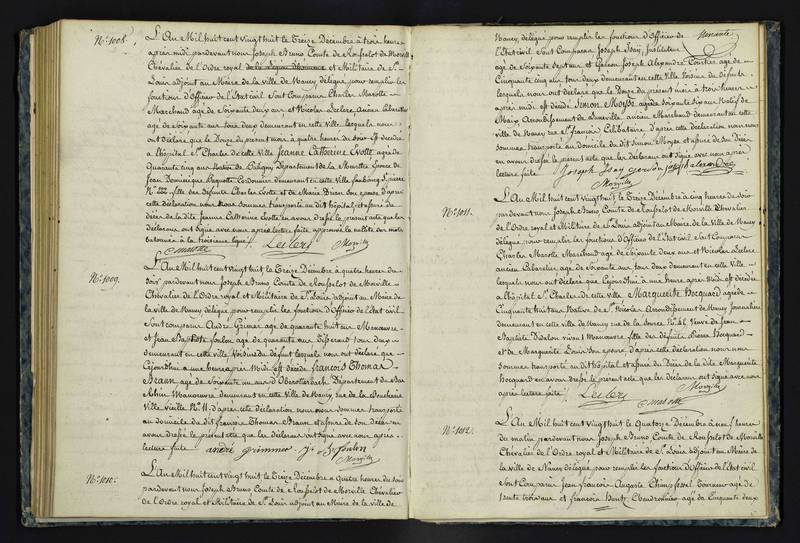 N.º 1008.
L'An Mil huit cent vingt huit le Treize Décembre à trois heures
après midi pardevant nous Joseph Bruno Comte de Rousselot de Morville
Chevalier de l'Ordre royal de la Légion d'honneur et Militaire de St
Louis adjoint au Maire de la ville de Nancy, délégué pour remplir les
fonctions d'Officier de l'état civil Sont Comparus Charles Marotte
Marchand âgé de Soixante deux ans et Nicolas Leclerc Ancien Cabaretier
âgé de Soixante ans tous deux demeurant en cette Ville lesquels nous
ont déclaré que le Douze du présent mois à quatre heures du soir est décédée
à l'hôpital St Charles de cette Ville Jeanne Catherine Evotte âgée de
Quarante cinq ans Native de Département de la Meurthe Epouse de
Jean Dominique Cordonnier demeurant en cette Ville faubourg St Pierre
N.º 222 fille des défunts Charles Evotte et de Marie son épouse d'après
cette déclaration nous nous sommes transporté au dit hôpital et assuré du
décès de la dite Jeanne Catherine Evotte en avons dressé le présent acte que les
déclarans ont signé avec nous après lecture faite, approuvé la nullité des mots
bâtonnés à la troisième ligne.
C marotte Leclerc Morville
N.º 1009.
L'An Mil huit cent vingt huit le Treize Décembre à quatre heures du
soir pardevant nous Joseph Bruno Comte de Rousselot de Morville
Chevalier de l'Ordre royal et Militaire de St Louis adjoint au Maire de
la ville de Nancy délégué pour remplir les fonctions d'Officier de l'état civil
Sont comparus André Grimar âgé de quarante huit ans Manœuvre
et Jean Baptiste foulon âgé de quarante ans tous deux
demeurant en cette ville Voisins du défunt lesquels nous ont déclaré que
Cejourd'hui à une heure après Midi est décédé francois Thomas
Braun âgé de Soixante un ans né Département du Bas
Rhin Manœuvre demeurant en cette Ville de Nancy, rue de la Boucherie
Ville vieille N.º 11. d'après cette déclaration nous nous sommes transporté
au domicile du dit françois Thomas Braun et assuré de son décès en
avons dressé le présent acte que les déclarans ont signé avec nous après
lecture faite
andré grimmer J. B foulon
Morville
N.º 1010.
L'An Mil huit cent vingt huit le Treize Décembre à quatre heures du soir
pardevant nous Joseph Bruno Comte de Rousselot de Morville Chevalier
de l'Ordre royal et Militaire de St Louis adjoint au Maire de la ville de
Nancy délégué pour remplir les fonctions d'Officier de
l'Etat civil Sont Comparus Joseph Isay, Instituteur
âgé de Soixante sept ans et Gerson Joseph Alexandre Courtier âgé de
Cinquante cinq ans tous deux demeurant en cette Ville Voisins du défunt
lesquels nous ont déclaré que le Douze du présent mois à trois heures
après midi est décédé Simon Moyse âgé de Soixante six ans Natif de
Arrondissement de Lunéville ancien Marchand demeurant en cette
ville de Nancy rue St françois Célibataire d'après cette déclaration nous nous
sommes transporté au domicile du dit Simon Moyse et assuré de son Décès
en avons dressé le présent acte que les déclarans ont signé avec nous après
lecture faite
Joseph Isay gerson joseph alexandre
Morville
N.º 1011.
L'An Mil huit cent vingt huit le Treize Décembre à cinq heures du soir
pardevant nous Joseph Bruno Comte de Rousselot de Morville Chevalier
de l'Ordre royal et Militaire de St Louis adjoint au Maire de la Ville de Nancy
délégué pour remplir les fonctions d'Officier de l'Etat civil Sont Comparus
Charles Marotte Marchand âgé de Soixante deux ans et Nicolas Leclerc
ancien Cabaretier âgé de Soixante ans tous deux demeurant en cette Ville
lesquels nous ont déclaré que Cejourd'hui à une heure après Midi est décédée
à l'hôpital St Charles de cette ville Marguerite Hocquard âgée de
Cinquante huit ans Native de St Nicolas Arrondissement de Nancy Journalière
demeurant en cette ville de Nancy rue N.º 45 Veuve de Jean
Baptiste vivant Manœuvre fille des défunts Pierre Hocquard
et de Marguerite son épouse d'après cette déclaration nous nous
sommes transporté au dit hôpital et assuré du Décès de la dite Marguerite
Hocquard en avons dressé le présent acte que les déclarans ont signé avec nous
après lecture faite
Leclerc C marotte Morville
N.º 1012.
L'An Mil huit cent vingt huit le Quatorze Décembre à neuf heures
du matin pardevant nous Joseph Bruno Comte de Rousselot de Morville
Chevalier de l'Ordre royal et Militaire de St Louis adjoint au Maire de
la Ville de Nancy délégué pour remplir les fonctions d'Officier de l'Etat civil
Sont Comparus Jean françois Auguste Tourneur âgé de
trente trois ans et françois Henry Chaudronnier âgé de Cinquante deux